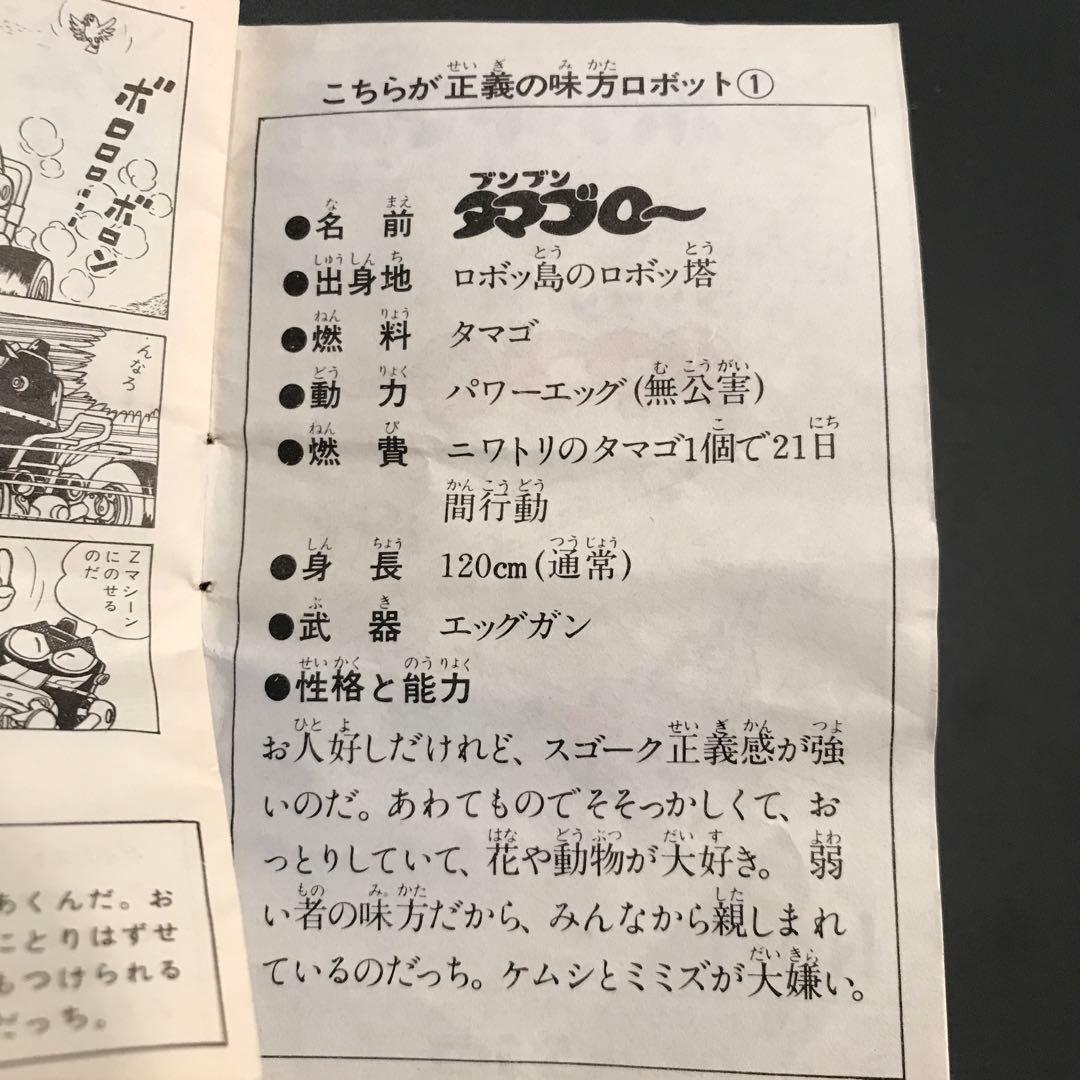 こちらが正義の味方ロボット①
●名前 ブンブンタマゴロ〜
●出身地 ロボッ島のロボッ塔
●燃料 タマゴ
●動力 パワーエッグ(無公害)
●燃費 ニワトリのタマゴ1個で21日
間行動
●身長 120cm(通常)
●武器 エッグガン
●性格と能力
お人好しだけれど、スゴーク正義感が強
いのだ。あわてものでそそっかしくて、お
っとりしていて、花や動物が大好き。弱
い者の味方だから、みんなから親しまれ
ているのだっち。ケムシとミミズが大嫌い。
ボロロロ…
ボロン
んなろ
Zマシーン
にのせる
のだ
あくんだ。お
ことりはずせ
もつけられる
だっち。